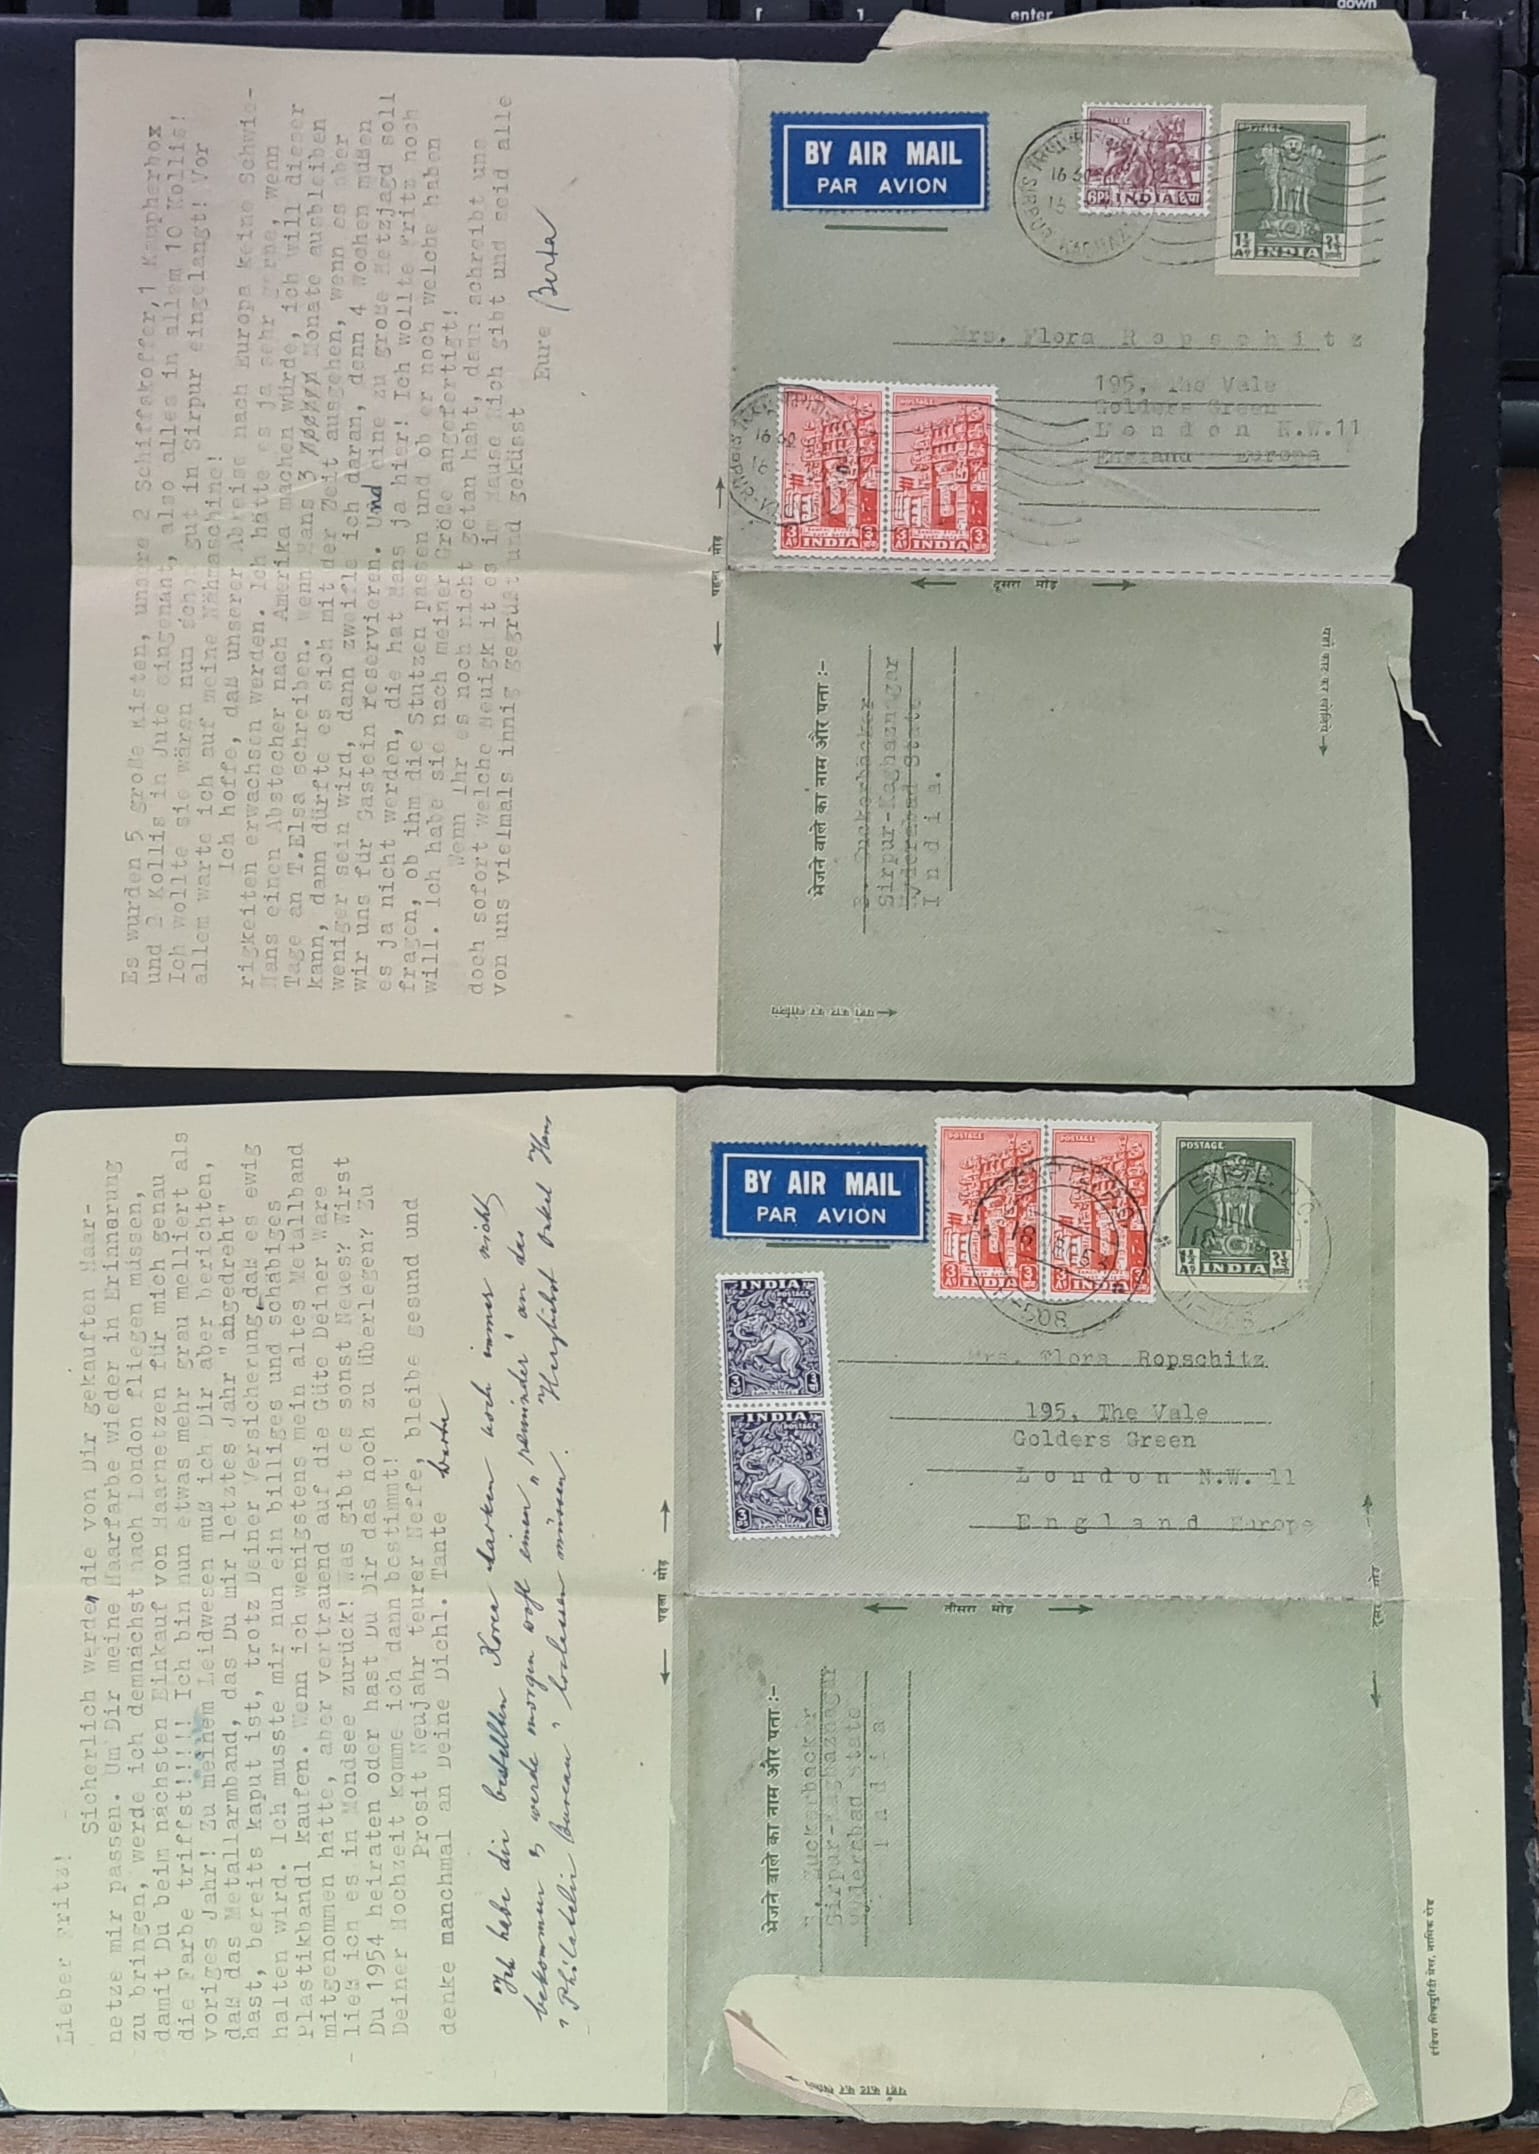 Es wurden 5 große Kisten, unsre 2 Schiffskoffer, 1 Kampherbox
und 2 Kollis in Jute eingenäht, also alles in allem 10 Kollis!
Ich wollte sie wären nun schon gut in Sirpur eingelangt! Vor
allem warte ich auf meine Nähmaschine!
Ich hoffe, daß unserer Abreise nach Europa keine Schwie-
rigkeiten erwachsen werden. Ich hätte es ja sehr gerne, wenn
Hans einen Abstecher nach Amerika machen würde, ich will dieser
Tage an T.Elsa schreiben. Wenn Hans 3 Monate ausbleiben
kann, dann dürfte es sich mit der Zeit ausgehen, wenn es aber
weniger sein wird, dann zweifle ich daran, denn 4 Wochen müßen
wir uns für Gastein reservieren. Und eine zu große Hetzjagd soll
es ja nicht werden, die hat Hans ja hier! Ich wollte Fritz noch
fragen, ob ihm die Stutzen passen und ob er noch welche haben
will. Ich habe sie nach meiner Größe angefertigt!
Wenn Ihr es noch nicht getan habt, dann schreibt uns
doch sofort welche Neuigkeit es im Hause Rich gibt und seid alle
von uns vielmals innig gegrüßt und geküsst
Eure Berta
BY AIR MAIL
PAR AVION
6Ps INDIA
POSTAGE
1½ As INDIA
Mrs. Flora Ropschitz
195, The Vale
Golders Green
London N.W.11
England Europa
3 As INDIA 3
3 As INDIA 3
पहला मोड़
दूसरा मोड़
भेजने वाले का नाम और पता :-
Zuckerbäcker
Sirpur-Kaghaznagar
Hyderabad State
India.
यहां काट कर खोलिये
यहां काट कर खोलिये
Lieber Fritz!
Sicherlich werden die von Dir gekauften Haar-
netze mir passen. Um Dir meine Haarfarbe wieder in Erinnerung
zu bringen, werde ich demnächst nach London fliegen müssen,
damit Du beim nächsten Einkauf von Haarnetzen für mich genau
die Farbe triffst!!!!! Ich bin nun etwas mehr grau melliert als
voriges Jahr! Zu meinem Leidwesen muß ich Dir aber berichten,
daß das Metallarmband, das Du mir letztes Jahr "angedreht"
hast, bereits kaput ist, trotz Deiner Versicherung, daß es ewig
halten wird. Ich musste mir nun ein billiges und schäbiges
Plastikbandl kaufen. Wenn ich wenigstens mein altes Metallband
mitgenommen hätte, aber vertrauend auf die Güte Deiner Ware
ließ ich es in Mondsee zurück! Was gibt es sonst Neues? Wirst
Du 1954 heiraten oder hast Du Dir das noch zu überlegen? Zu
Deiner Hochzeit komme ich dann bestimmt!
Prosit Neujahr teurer Neffe, bleibe gesund und
denke manchmal an Deine Dichl. Tante Berta
Ich habe die bestellten Korea Marken noch immer nicht
bekommen & werde morgen wohl einen „reminder" an das
„Philatelic Bureau" loslassen müssen. Herzlichst Onkel Hans
BY AIR MAIL
PAR AVION
POSTAGE
3 As INDIA 3
POSTAGE
3 As INDIA 3
POSTAGE
1½ As INDIA
INDIA
POSTAGE
INDIA
POSTAGE
Mrs. Flora Ropschitz
195, The Vale
Golders Green
London N.W. 11
England Europe
पहला मोड़
तीसरा मोड़
दूसरा मोड़
भेजने वाले का नाम और पता :-
Zuckerbäcker
Sirpur-Kaghaznagar
Hyderabad State
India
यहां काट कर खोलिये
इंडिया सिक्युरिटी प्रेस, नासिक रोड
enter
down